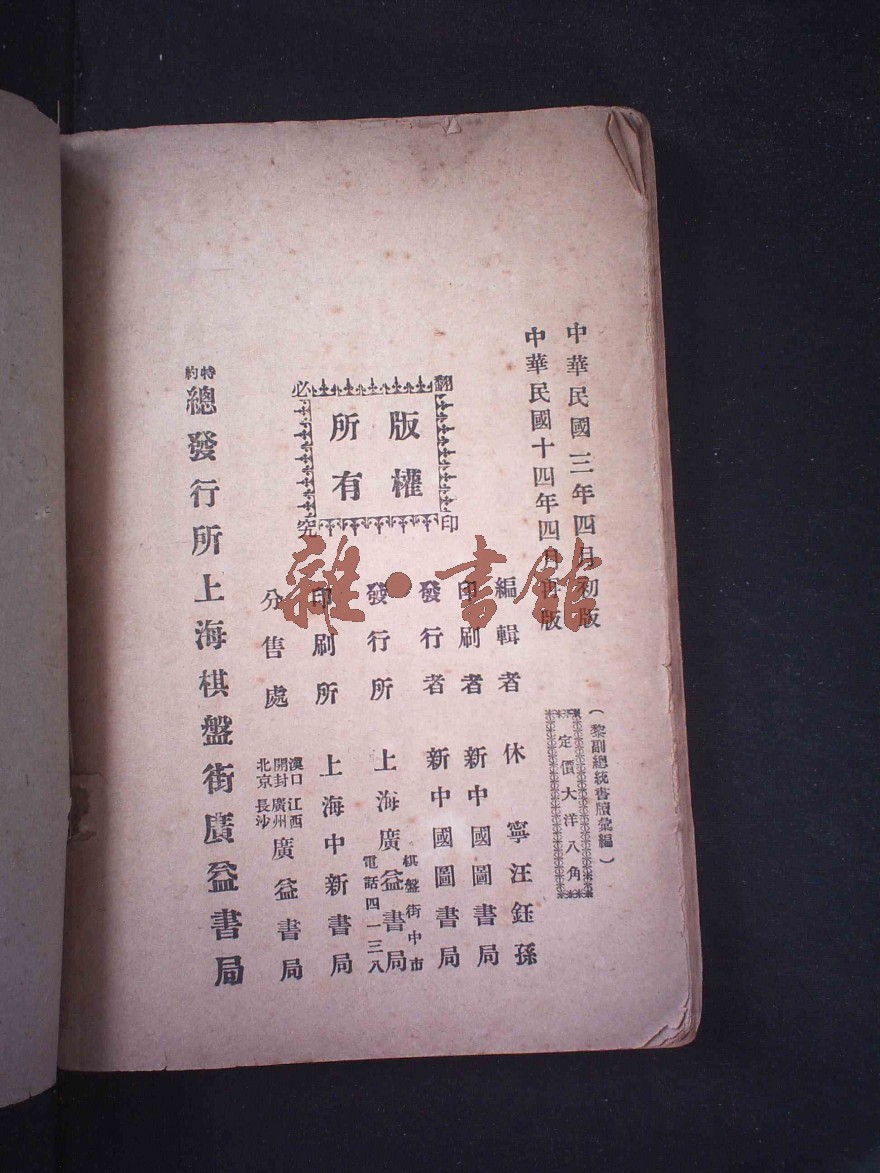 中華民國三年四月初版
中華民國十四年四月廿版
(黎副總統書牘彙編)
定價大洋八角
編輯者 休寧汪鈺孫
印刷者 新中國圖書局
發行者 新中國圖書局
發行所 上海廣益書局
棋盤街中市
電話四一三八
印刷所 上海中新書局
分售處 漢口 江西 開封 廣州 北京 長沙 廣益書局
版權所有
翻印必究
特約總發行所上海棋盤街廣益書局
雜·書館